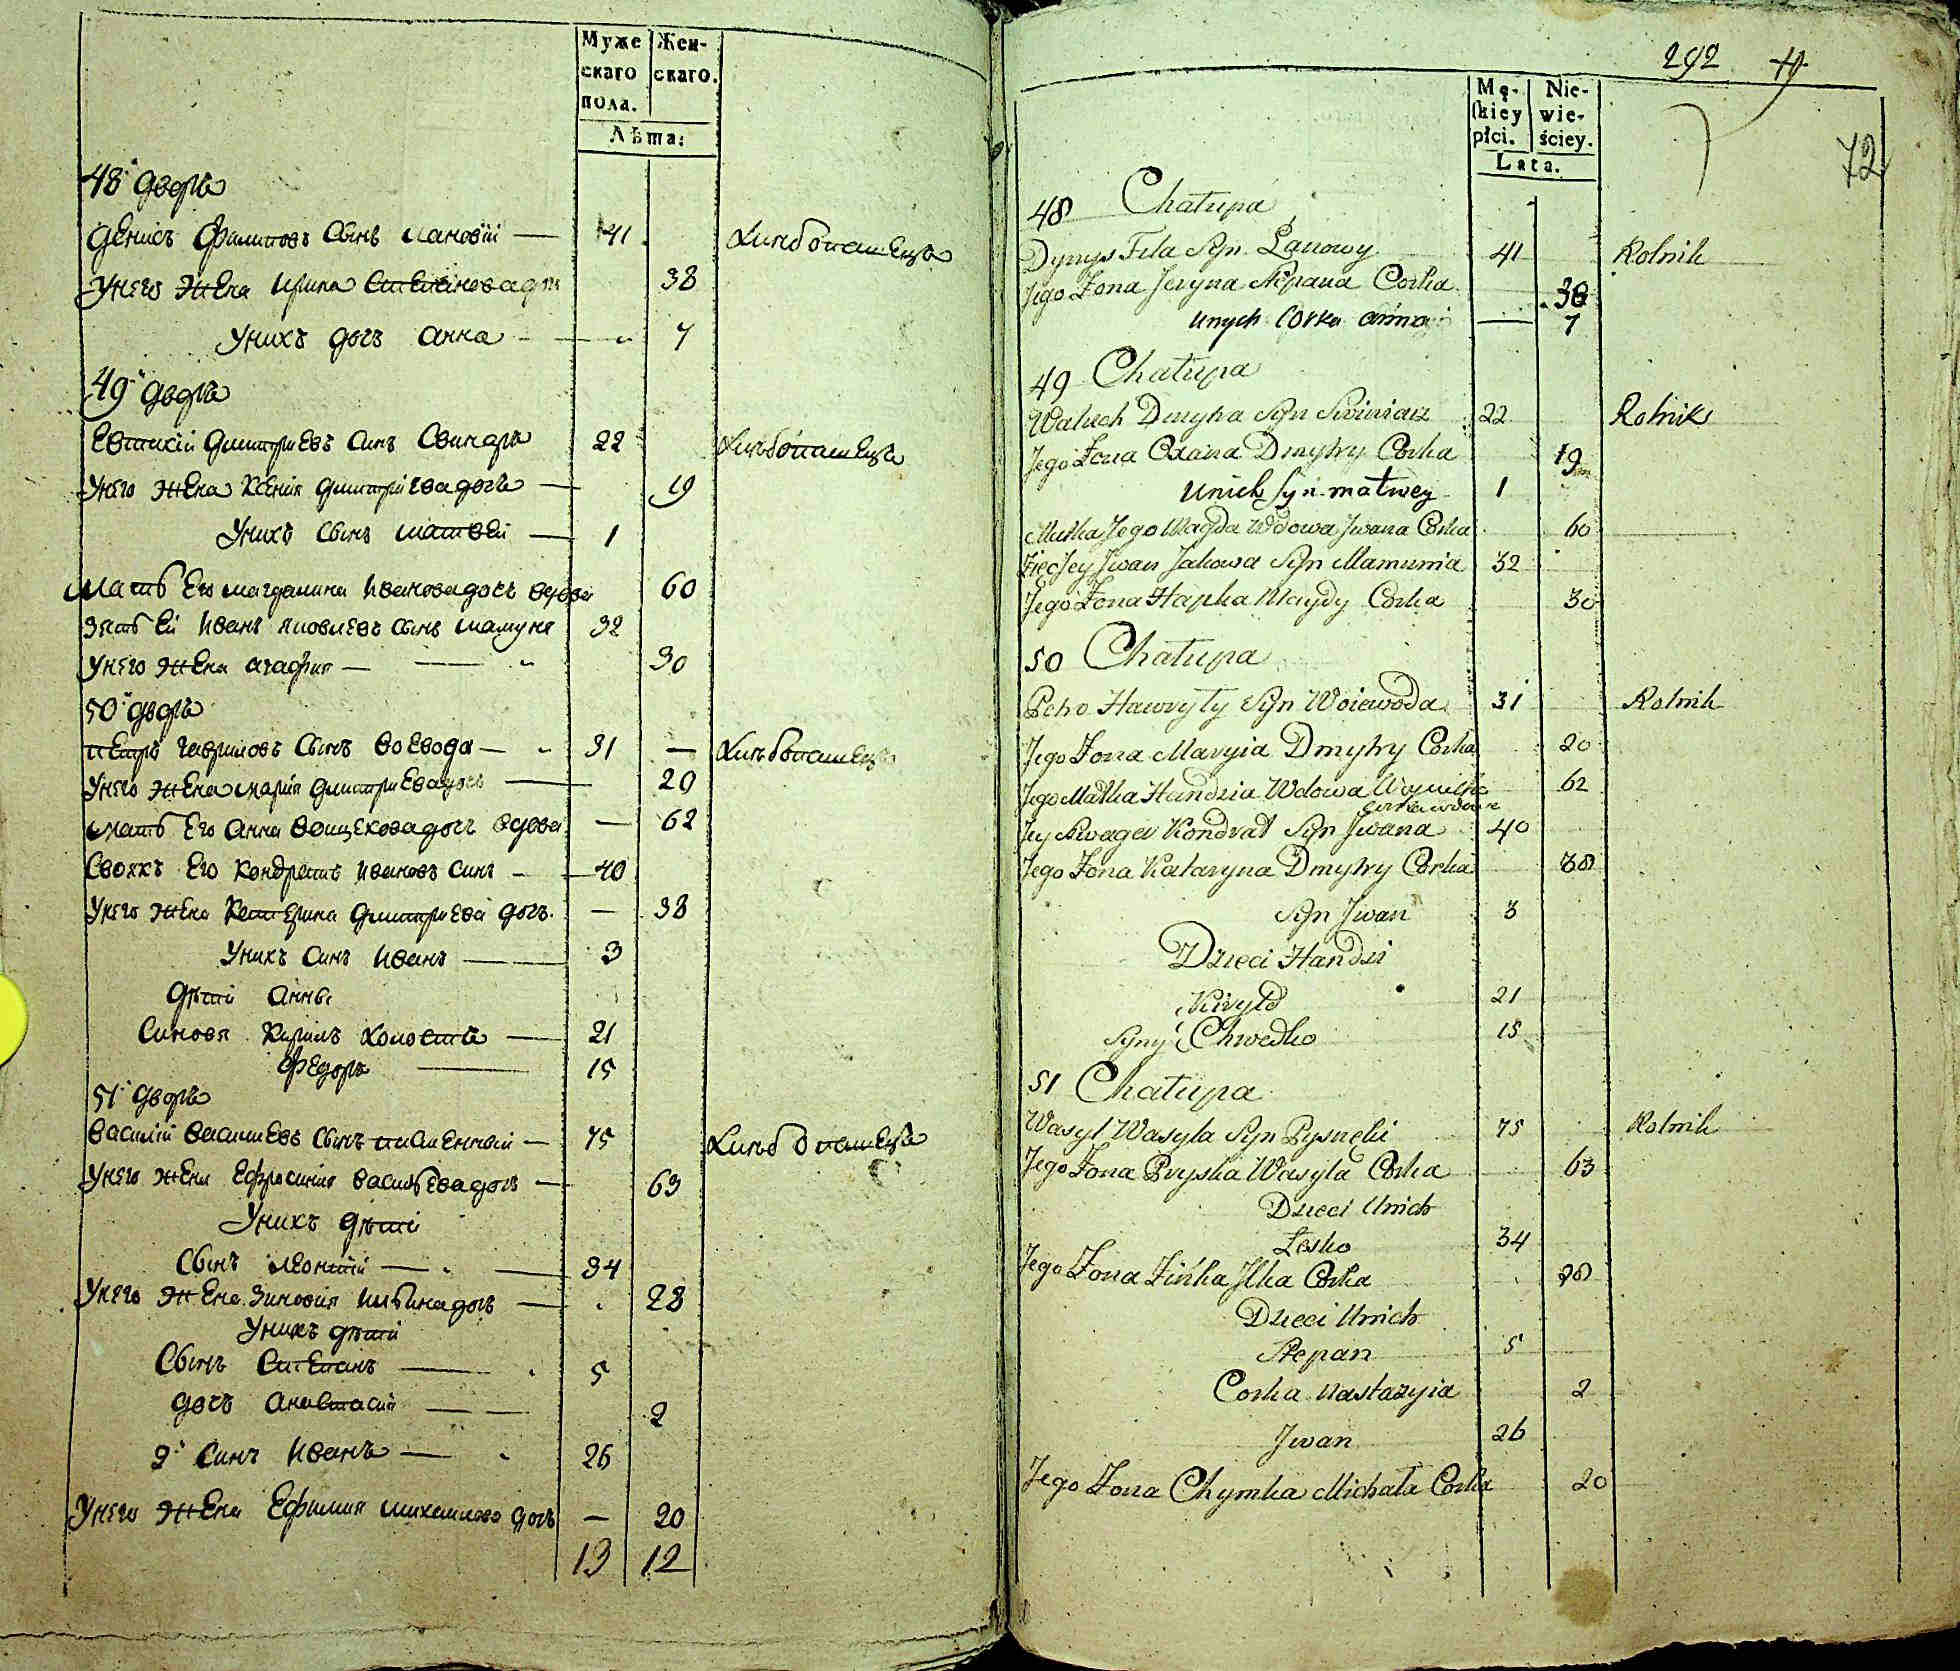 Муже
скаго
пола.
Жен-
скаго.
Лѣта:
48й дворъ
Денисъ Филиповъ сынъ Лановїй — 41 Хлибопашецъ
Унего жена Ирина Степановадочь 38
Унихъ дочъ Анна — 7
49й дворъ
Евтихїй Дмитриевъ синъ Свинаръ 22 Хлѣбопашецъ
Унего жена Ксения Дмитрїевадочъ — 19
Унихъ сынъ Матвей — 1
Мать его Магдалина Ивановадочъ вдова 60
Зять ей Иванъ Яковлевъ сынъ Мамуня 32
Унего жена Агафия — 30
50й дворъ
Петръ Гавриловъ сынъ Воевода — 31 — Хлѣбопашецъ
Унего жена Мария Дмитриевадочъ — 20
Мать его Анна Войцеховадочъ вдова — 62
Своякъ его Кондратъ Ивановъ синъ — 40
Унего жена Катерина Дмитриева дочъ. — 38
Унихъ синъ Иванъ — 3
Дѣти Анны
Синовя Кирилъ холостъ — 21
Федоръ — 15
51й дворъ
Василїй Василиевъ сынъ Писменный — 75 Хлибопашецъ
Унего жена Ефросиния Васильевадочъ — 63
Унихъ дѣти
Сынъ Леонтий — 34
Унего жена Зиновия Ильинадочъ — 28
Унихъ дѣти
Сынъ Степанъ — 5
дочъ Анастасия — 2
2й синъ Иванъ — 26
Унего жена Ефимия Михайлова дочъ — 20
13 12
292
72
Mę-
skiey
płci.
Nie-
wie-
ściey.
Lata.
48 Chałupa
Dynys Fila Syn Łanowy 41 Rolnik
Jego Żona Jeryna Stepana Corka 38
Unych Corka Anna — 7
49 Chałupa
Dmytra Syn Swiniarz 22 Rolnik
Jego Żona Oxana Dmytry Corka 19
Unich Syn Matwey 1
Matka Jego Magda Wdowa Jwana Corka 60
Zięc Jey Jwan Jakowa Syn Mamunia 32
Jego Żona Hapka Magdy Corka 30
50 Chałupa
Petro Hawryły Syn Woiewoda 31 Rolnik
Jego Żona Maryia Dmytry Corka 20
Jego Matka Handzia Wdowa 62
Jey Szwagier Kondrat Syn Jwana 40
Jego Żona Kataryna Dmytry Corka 38
Syn Jwan 3
Dzieci Handzi
Kiryło 21
Syny Chwedko 15
51 Chałupa
Wasyl Wasyla Syn 75 Rolnik
Jego Żona Pryska Wasyla Corka 63
Dzieci Unich
Lesko 34
Jego Żona Zińka Jlka Corka 28
Dzieci Unich
Stepan 5
Corka Nastazyia 2
Jwan 26
Jego Żona Chymka Michała Corka 20